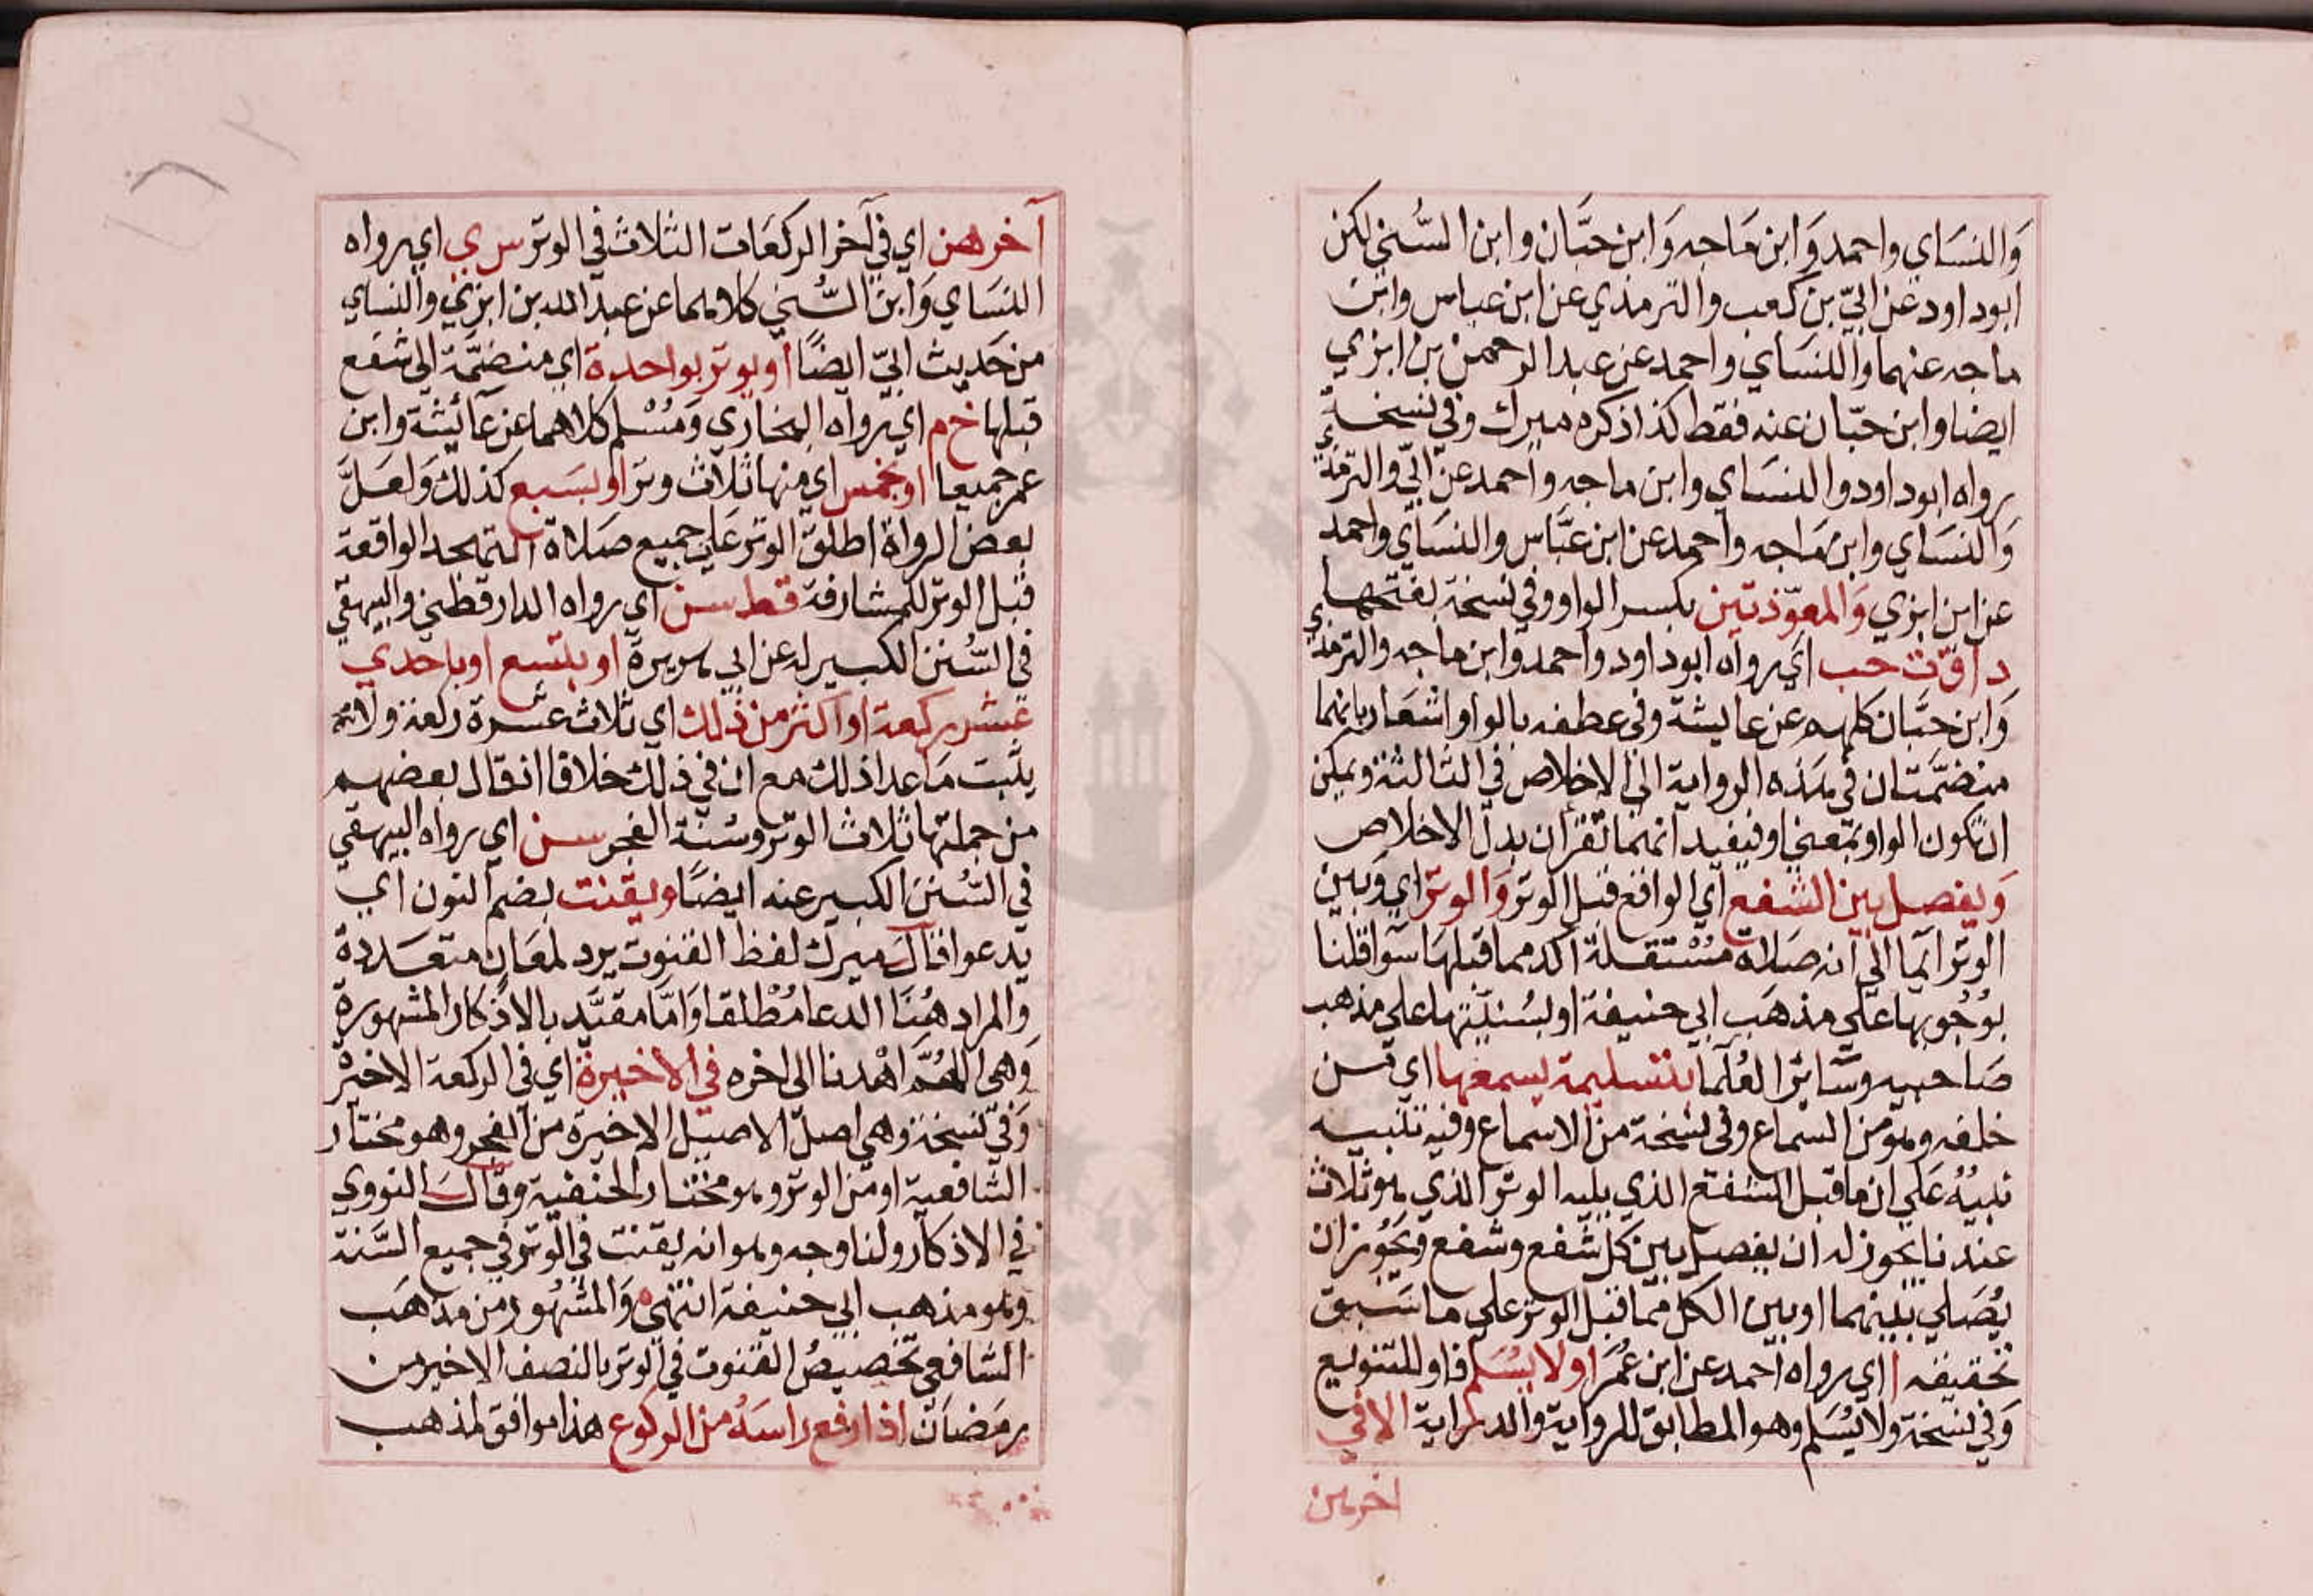 والنساي واحمد وابن ماجه وابن حبان وابن السني لكن
ابوداود عن ابيّ بن كعب والترمذي عن ابن عباس وابن
ماجه عنهما والنساي واحمد عن عبد الرحمن بن ابزي
ايضا وابن حبّان عنه فقط كذا ذكره ميرك وفي نسخة
رواه ابوداود والنساي وابن ماجه واحمد عن ابيّ والترمذي
والنساي وابن ماجه واحمد عن ابن عبّاس والنساي واحمد
عن ابن ابزي والمعوّذتين بكسر الواو وفي نسخة بفتحها
د ا ق ت حب اي رواه ابوداود واحمد وابن ماجه والترمذي
وابن حبّان كلهم عن عايشة وفي عطفه بالواو اشعار بانهما
منضمّتان في هذه الرواية الي الاخلاص في الثالثة ويمكن
ان تكون الواو بمعني او فيفيد انهما تقران بدل الاخلاص
ويفصل بين الشفع اي الواقع قبل الوتر والوتر اي وبين
الوتر ايما الي انه صلاة مستقلة اكد مما قبلها سوا قلنا
بوجوبها علي مذهب ابي حنيفة او بسنيّتها علي مذهب
صاحبيه وسائر العلما بتسليمة يسمعها اي من
خلفه وهو من السماع وفي نسخة من الاسماع وفيه تنبيه
نبيه علي ان ما قبل الشفع الذي يليه الوتر الذي هو ثلاث
عندنا يجوز له ان يفصل بين كل شفع وشفع ويجوز ان
يصلي بينهما او بين الكل مما قبل الوتر علي ما سبق
تحقيقه ا اي رواه احمد عن ابن عمر او لا يسلم فاو للتنويع
وفي نسخة ولا يسلم وهو المطابق للرواية والدراية الا في
اخرهن
آخرهن اي في آخر الركعات الثلاث في الوتر س ي اي رواه
النساي وابن السّني كلاهما عن عبد الله بن ابزي والنساي
من حديث ابيّ ايضًا او يوتر بواحدة اي منضمّة الي شفع
قبلها خ م اي رواه البخاري ومسلم كلاهما عن عائيشة وابن
عمر جميعا او بخمس اي منها ثلاث وتر او بسبع كذلك ولعلّ
بعض الرواة اطلق الوتر علي جميع صلاة التهجد الواقعة
قبل الوتر للمشارفة قط سن اي رواه الدارقطني والبيهقي
في السّنن الكبير له عن ابي هريرة او بتسع او باحدي
عشر ركعة او اكثر من ذلك اي ثلاث عشرة ركعة ولانه
يثبت ما عدا ذلك مع ان في ذلك خلافا اذ قال بعضهم
من جملتها ثلاث الوتر وسنة الفجر سن اي رواه البيهقي
في السّنن الكبير عنه ايضًا ويقنت بضم النون اي
يدعوا قال ميرك لفظ القنوت يرد لمعان متعددة
والمراد هنا الدعا مطلقا وامّا مقيّد بالاذكار المشهورة
وهي اللهم اهدنا الي اخره في الاخيرة اي في الركعة الاخيرة
وفي نسخة وهي اصل الاصيل الاخيرة من الفجر وهو مختار
الشافعية او من الوتر وهو مختار الحنفية وقال النووي
في الاذكار ولنا وجه وهو انه يقنت في الوتر في جميع السّنة
وهو مذهب ابي حنيفة انتهي والمشهور من مذهب
الشافعي تخصيص القنوت في الوتر بالنصف الاخير من
رمضان اذا رفع راسه من الركوع هذا موافق لمذهب